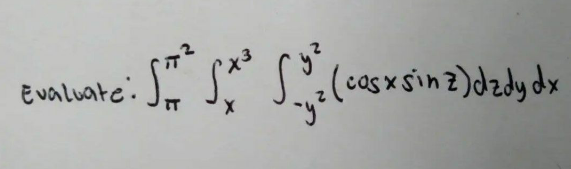 Evaluate: ∫_π^π² ∫_x^x³ ∫_-y²^y² (cosx sin z) dz dy dx